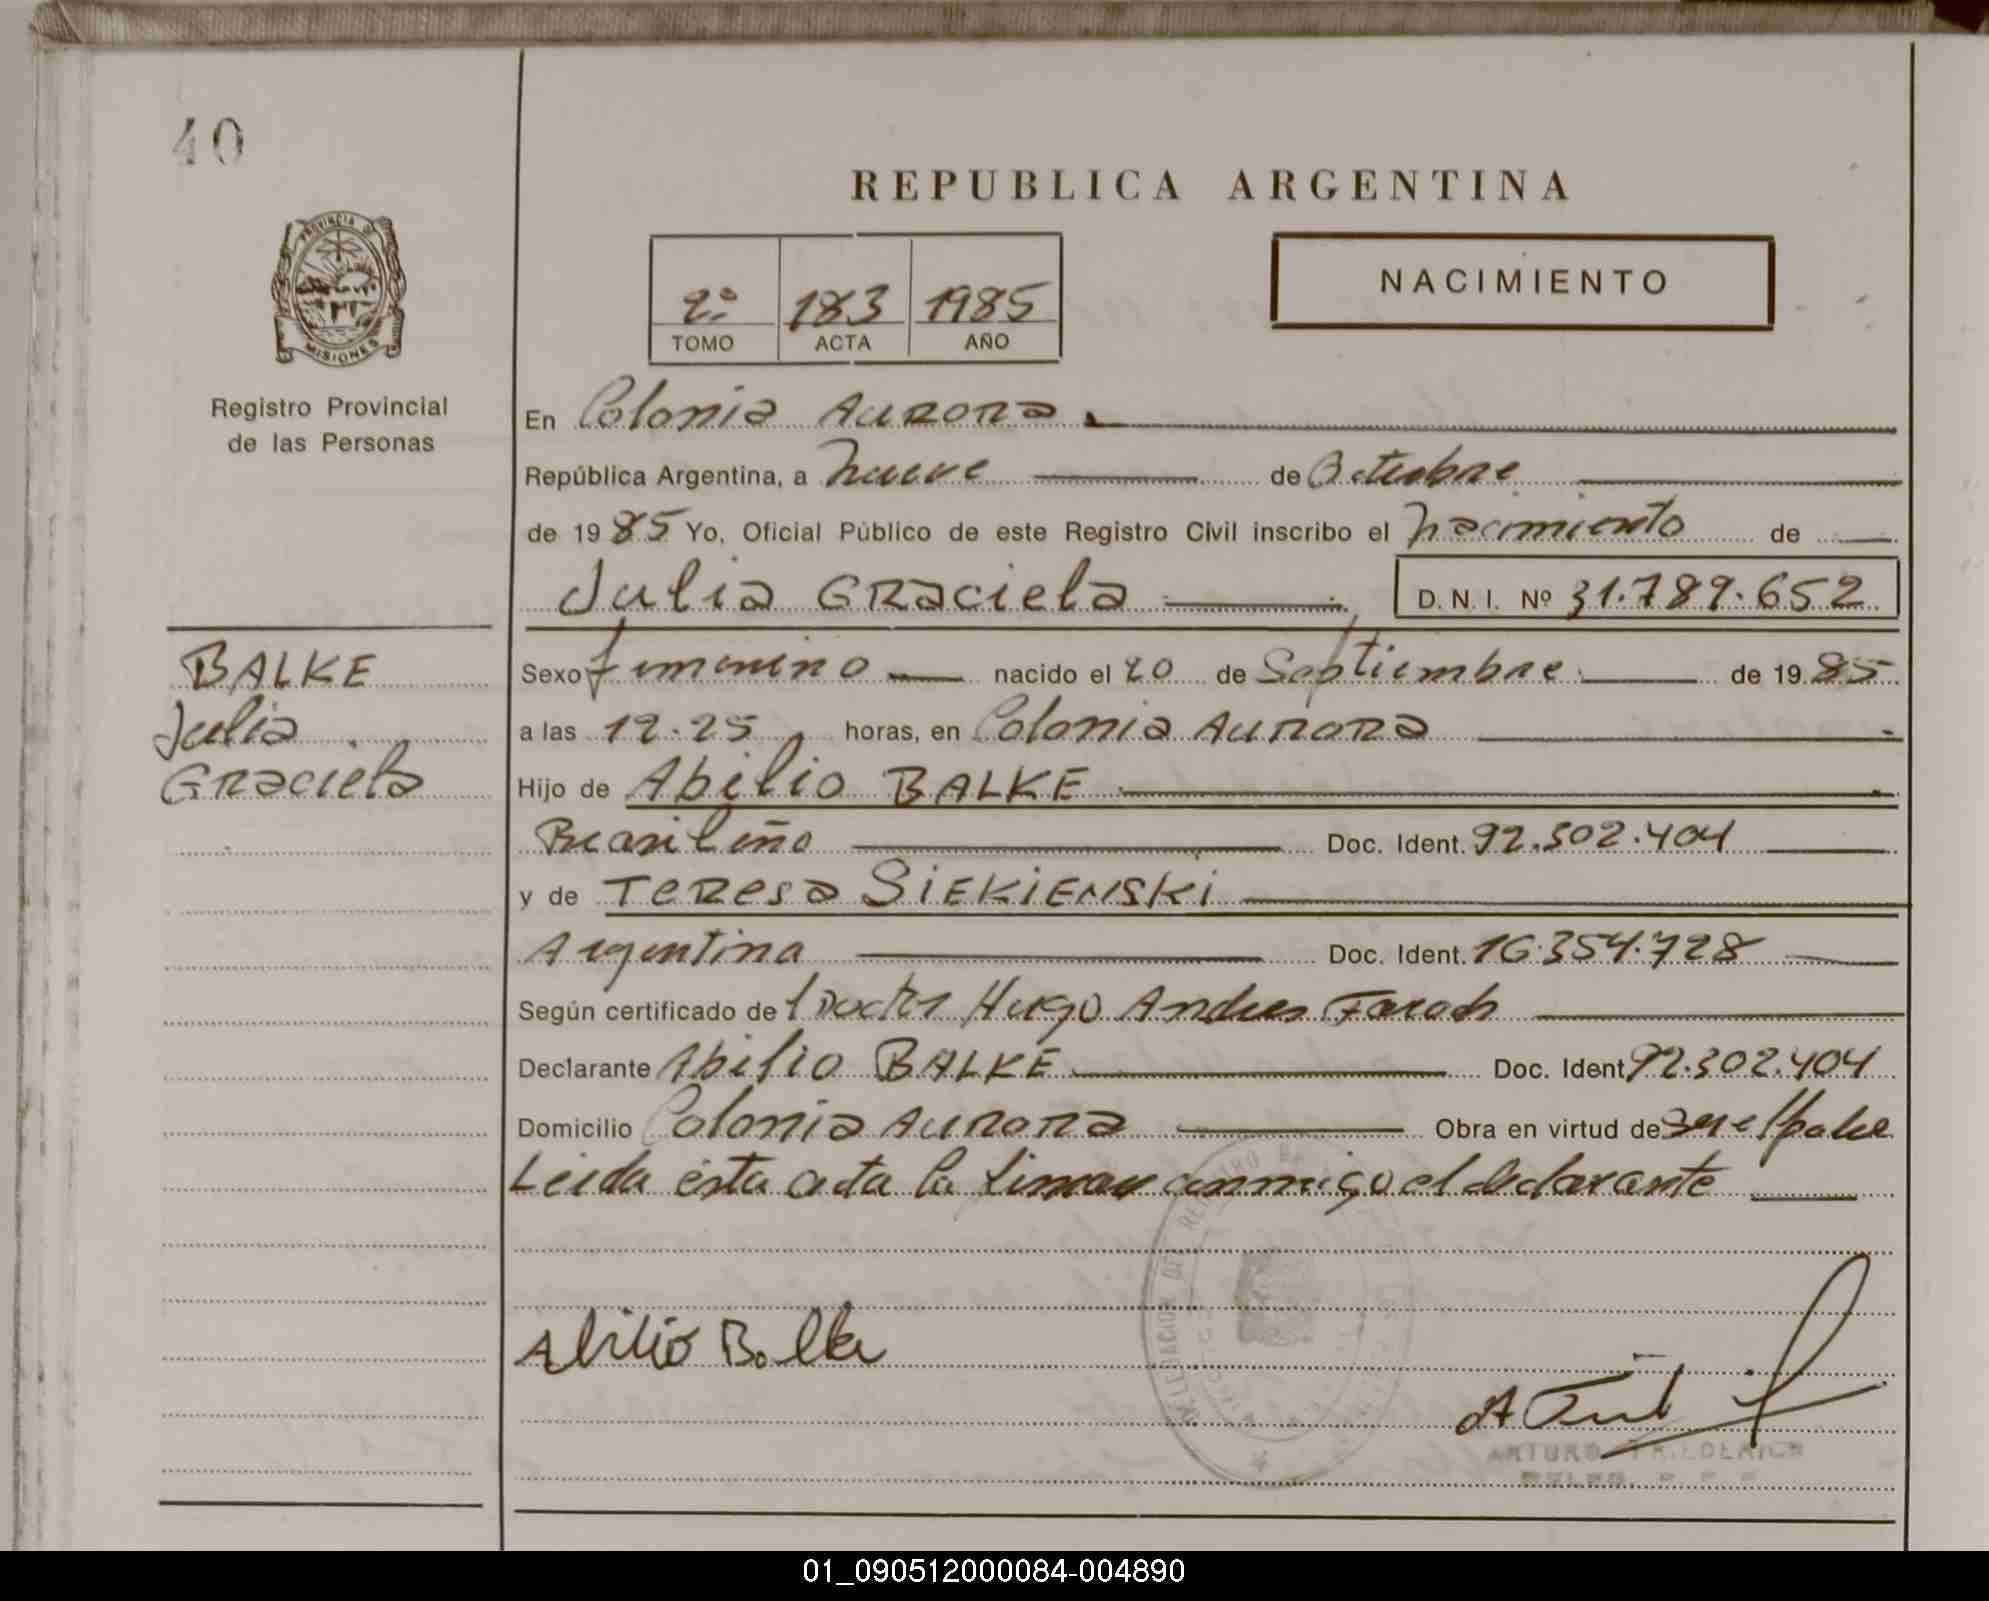 40
REPUBLICA ARGENTINA
PROVINCIA DE
MISIONES
Registro Provincial
de las Personas
2º 183 1985
TOMO ACTA AÑO
NACIMIENTO
En Colonia Aurora
República Argentina, a nueve de Octubre
de 1985 Yo, Oficial Público de este Registro Civil inscribo el nacimiento de
Julia Graciela D. N. I. Nº 31.789.652
BALKE
Julia
Graciela
Sexo femenino nacido el 20 de Septiembre de 1985
a las 12.25 horas, en Colonia Aurora
Hijo de Abilio BALKE
Brasileño Doc. Ident. 92.302.404
y de Teresa SIEKIENSKI
Argentina Doc. Ident. 16.354.728
Según certificado de Doctor Hugo Andres Farach
Declarante Abilio BALKE Doc. Ident. 92.302.404
Domicilio Colonia Aurora Obra en virtud de ser el padre
Leida ésta acta la firman conmigo el declarante
Abilio Balke
ARTURO FRIEDERICH
01_090512000084-004890